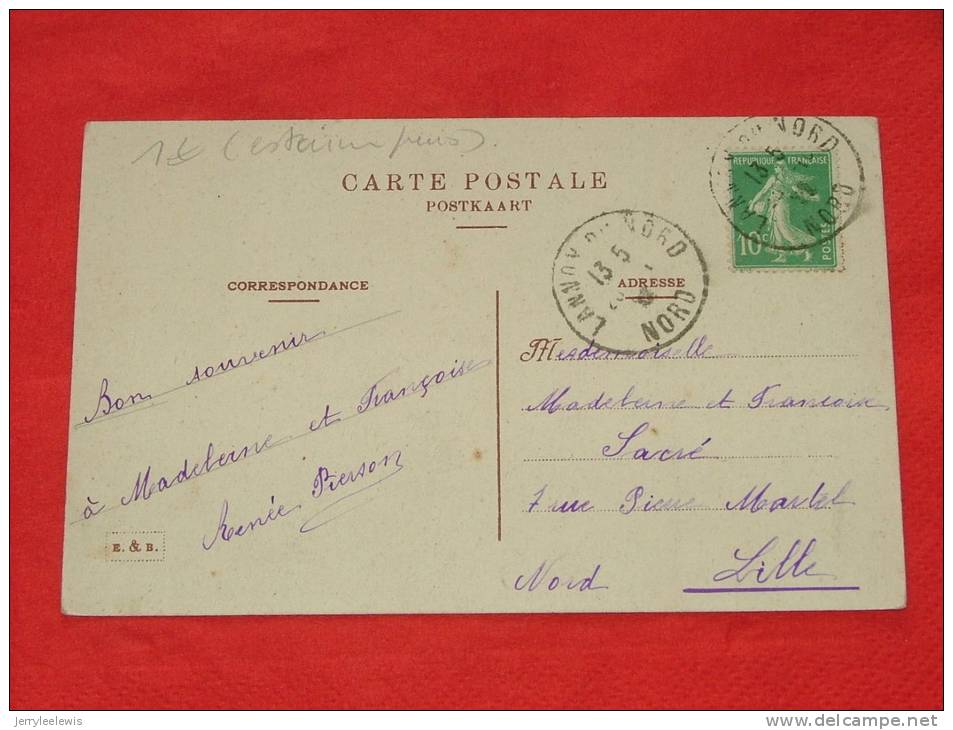 1€ (estaimpuis)
CARTE POSTALE
POSTKAART
CORRESPONDANCE
ADRESSE
LANNOY DU NORD
13 5
NORD
LANNOY DU NORD
13 5
NORD
REPUBLIQUE FRANÇAISE
10c
POSTES
Bon souvenir
à Madeleine et Françoise
Renée Pierson
E. & B.
Mesdemoiselle
Madeleine et Francoise
Sacré
7 rue Pierre Martel
Nord Lille
jerryleelewis
www.delcampe.net